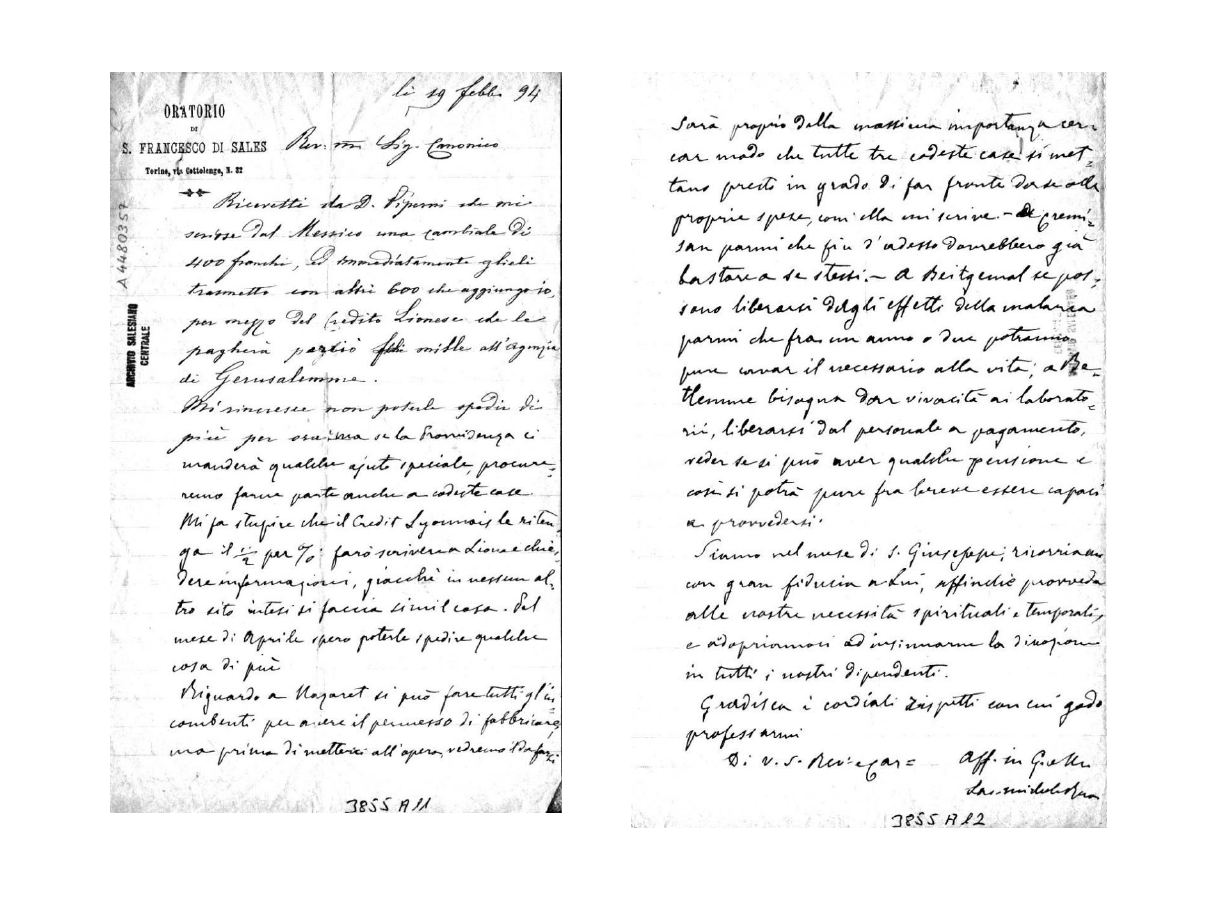 li 19 febb. 94
ORATORIO
DI
S. FRANCESCO DI SALES
Torino, via Cottolengo, N. 32
Rev. mo Sig. Canonico
Ricevetti da D. Piperni che mi
scrisse dal Messico una cambiale di
400 franchi, ed immediatamente glieli
trasmetto con altri 600 che aggiungo io,
per mezzo del Credito Lionese che le
pagherà perciò mille all'agenzia
di Gerusalemme.
Mi rincresce non poterle spedir di
più per ora; ma se la Provvidenza ci
manderà qualche ajuto speciale, procure=
remo farne parte anche a codeste case.
Mi fa stupire che il Credit Lyonnais le riten=
ga il ½ per %: farò scrivere a Lione e chie=
dere informazioni, giacchè in nessun al=
tro sito intesi si faccia simil cosa. Pel
mese di Aprile spero poterle spedire qualche
cosa di più
Riguardo a Nazaret si può fare tutti gl'in=
combenti per avere il permesso di fabbricare,
ma prima di metterci all'opera, vedremo il da farsi
A 4480357
ARCHIVIO SALESIANO
CENTRALE
3855 A 11
Sarà proprio della massima importanza cer=
car modo che tutte tre codeste case si met=
tano presto in grado di far fronte da se alle
proprie spese, com'ella mi scrive. - Cremi=
san parmi che fin d'adesso dovrebbero già
bastare a se stessi. - A Beitgemal se pos=
sono liberarsi degli effetti della malaria
parmi che fra un anno o due potranno
pure cavar il necessario alla vita; a Be=
tlemme bisogna dar vivacità ai laborato=
rii, liberarsi dal personale a pagamento,
veder se si può aver qualche pensione e
così si potrà pure fra breve essere capaci
a provvedersi.
Siamo nel mese di S. Giuseppe; ricorriamo
con gran fiducia a Lui, affinchè provveda
alle nostre necessità spirituali e temporali,
e adopriamoci ad insinuarne la divozione
in tutti i nostri dipendenti.
Gradisca i cordiali rispetti con cui godo
professarmi
Di V. S. Rev. e Car=
Aff. in G. e M.
Sac. Michele Rua
3855 A 12